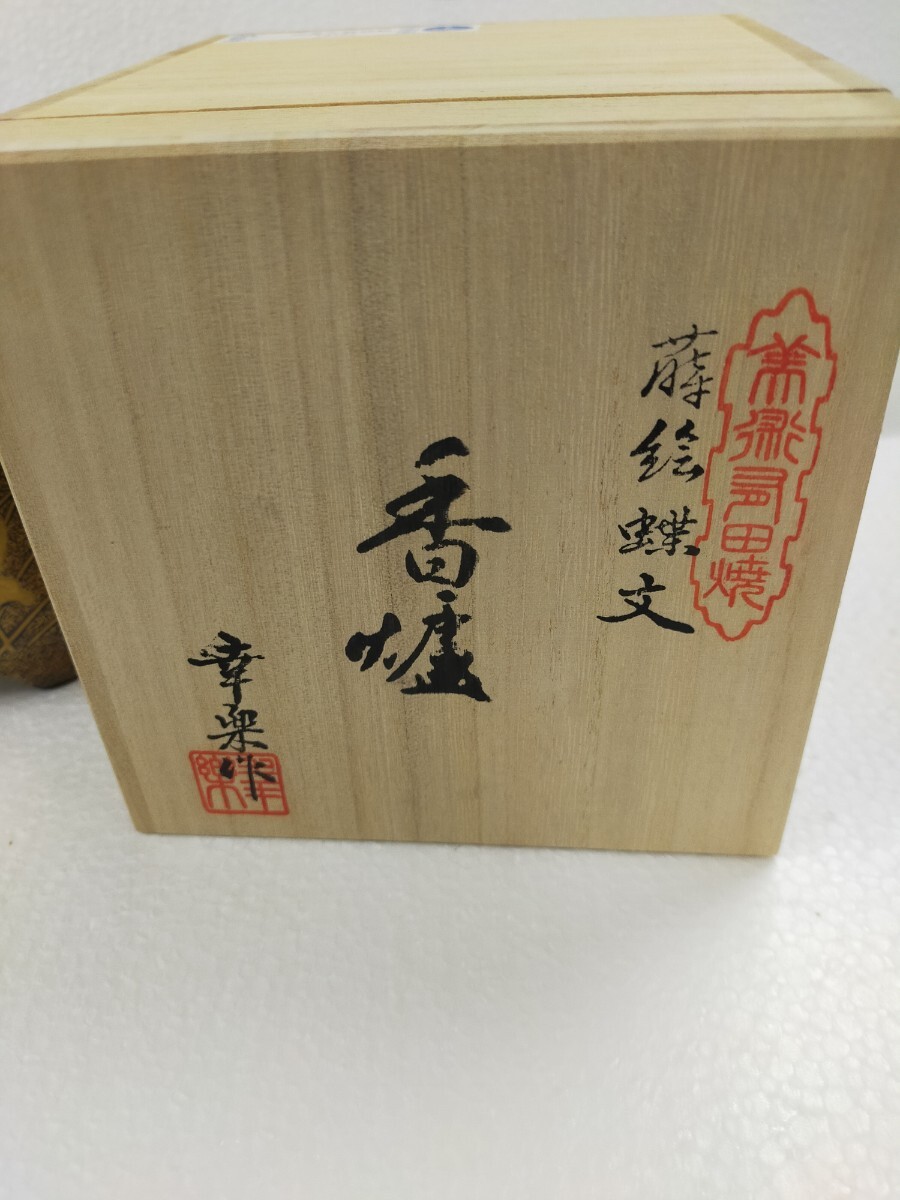 美術有田焼
蒔絵蝶文
香爐
幸楽作